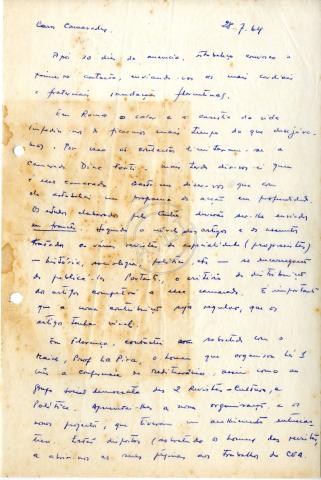 Caros Camaradas, 28.7.64
Após 20 dias de ausencia, estabeleço convosco o
primeiro contacto, enviando-vos as mais cordiais
e fraternais saudações florentinas.
Em Roma o calor e a carestia da vida
impediu-nos de ficarmos mais tempo do que desejáva-
mos. Por isso os contactos limitaram-se a
camarada Dina Forti. mais tarde direi-vos quem
é essa camarada. Basta-me dizer-vos que com
ela estabeleci um programa de acção em profundidade.
Os estudos elaborados pelo Centro deverão ser-lhe enviados
em francês. Segundo o nível dos artigos e os assuntos
tratados as várias revistas da especialidade (progressistas)
— história, sociologia, política etc — se encarregarão
de publicá-los. Portanto, o critério de distribuição
dos artigos compete a essa camarada. É importante
que a nossa contribuição seja regular, que os
artigos tenham nível.
Em Florença, contactei com
Maire, Prof La Pira, o homem que organizou há 5
a conferencia do Mediterrâneo, assim como ao
grupo social democrata das 2 Revistas - Cultura, e
Política. Apresentei-lhes a nossa organização, e os
nossos projectos, que tiveram um acolhimento entusias-
tico. Estão dispostos (sobretudo os homens das revistas,
a abrir-nos as suas páginas aos trabalhos do CEA.